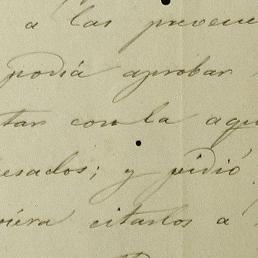 á las preven
podía aprobar
tar con la aqu
esados; y pidió
iera citarlos á